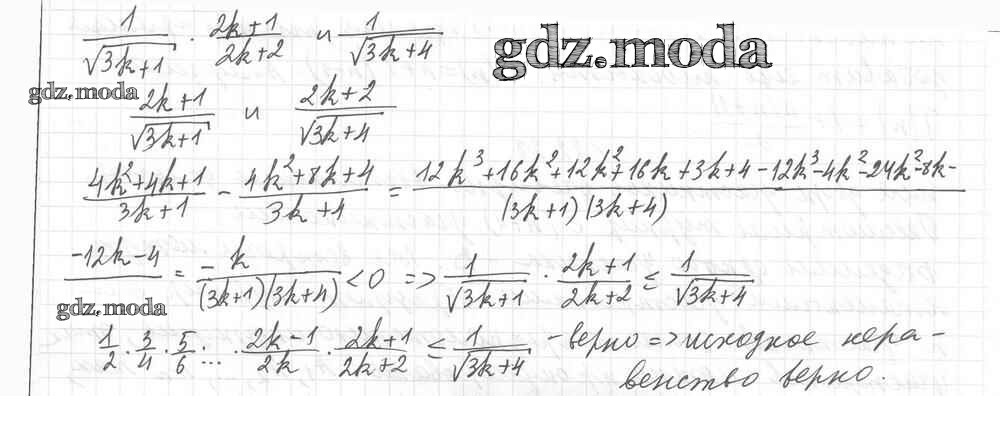 1/√(3k+1) · (2k+1)/(2k+2) и 1/√(3k+4)
gdz.moda
gdz.moda
(2k+1)/√(3k+1) и (2k+2)/√(3k+4)
(4k²+4k+1)/(3k+1) - (4k²+8k+4)/(3k+4) = (12k³+16k²+12k²+16k+3k+4-12k³-4k²-24k²-8k-
-12k-4)/((3k+1)(3k+4)) = -k/((3k+1)(3k+4)) < 0 => 1/√(3k+1) · (2k+1)/(2k+2) ≤ 1/√(3k+4)
gdz.moda
1/2 · 3/4 · 5/6 · ... · (2k-1)/2k · (2k+1)/(2k+2) ≤ 1/√(3k+4) - верно => исходное нера-
венство верно.